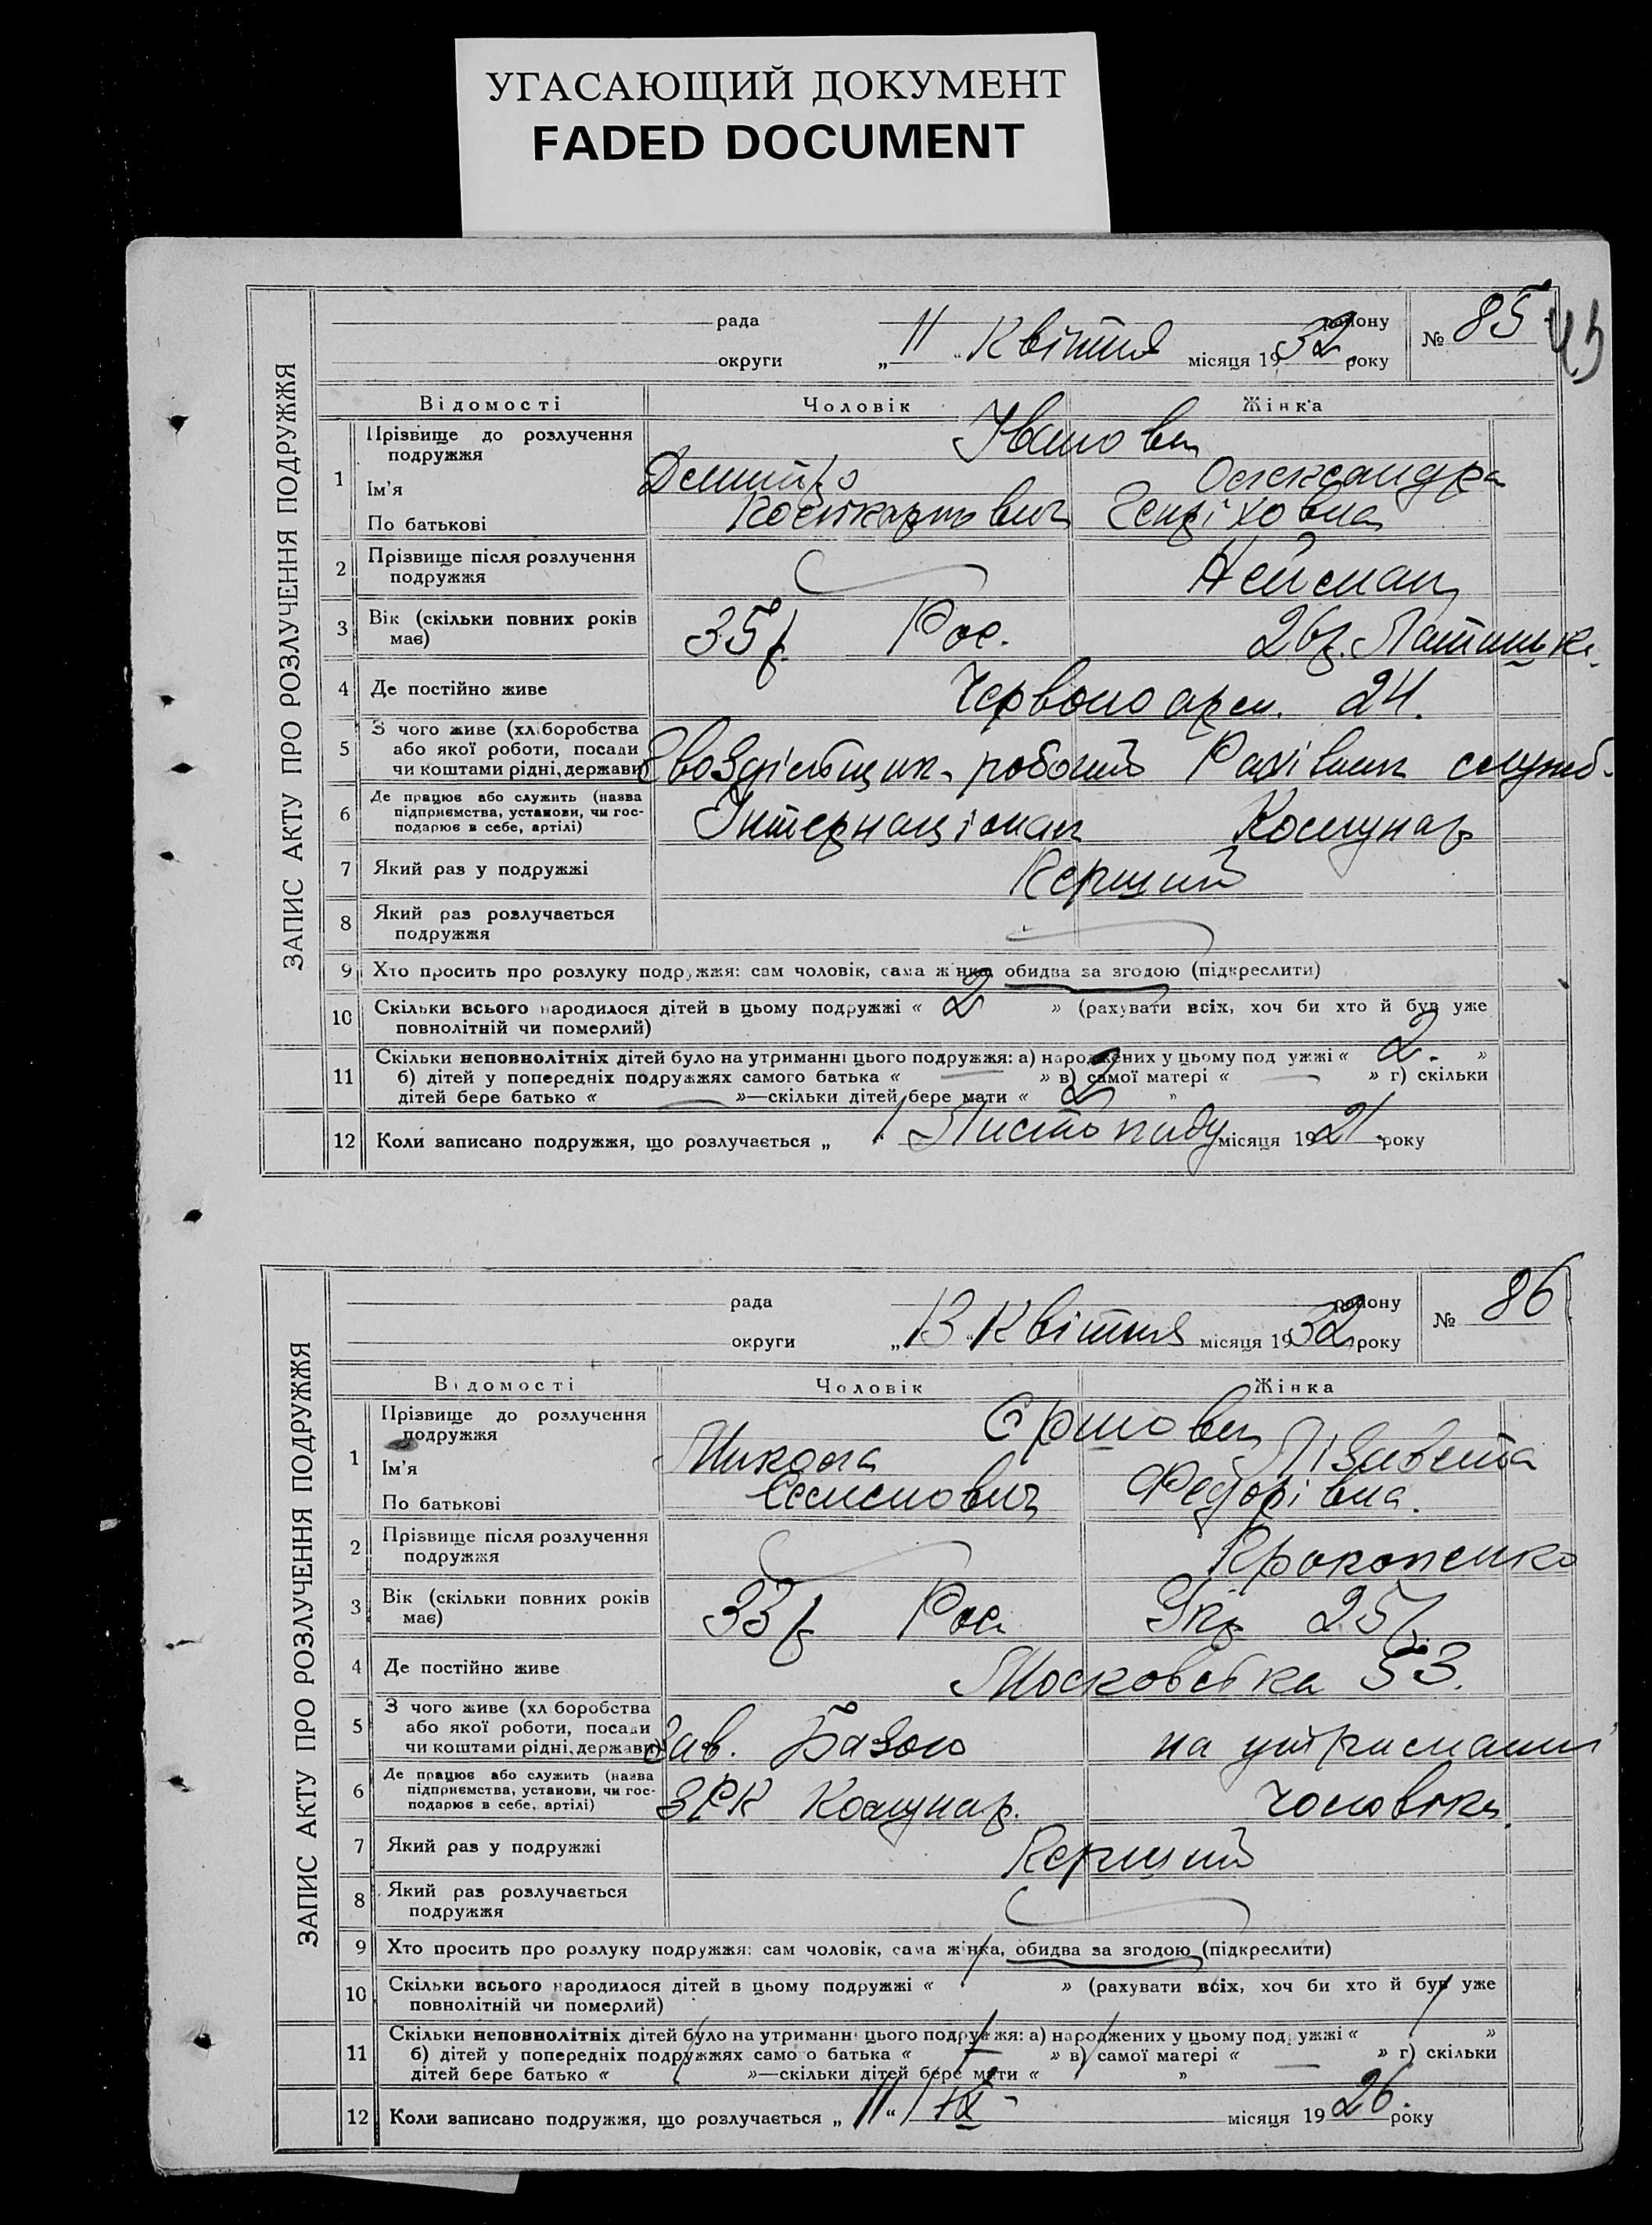 УГАСАЮЩИЙ ДОКУМЕНТ
FADED DOCUMENT
ЗАПИС АКТУ ПРО РОЗЛУЧЕННЯ ПОДРУЖЖЯ
рада району № 85
округи „ 11 “ Квітня місяця 1932 року
Відомості Чоловік Жінка
1 Прізвище до розлучення подружжя Іванови
Ім'я Дмитро Олександра
По батькові Генріховна
2 Прізвище після розлучення подружжя Нейман
3 Вік (скільки повних років має) 35 р. Рос. 26 р. Латишка
4 Де постійно живе Червоноарм. 24.
5 З чого живе (хліборобства або якої роботи, посади чи коштами рідні, держави) робочий Рахівник служб.
6 Де працює або служить (назва підприємства, установи, чи господарює в себе, артілі) Інтернаціонал Комунар
7 Який раз у подружжі Перший
8 Який раз розлучається подружжя
9 Хто просить про розлуку подружжя: сам чоловік, сама жінка, обидва за згодою (підкреслити)
10 Скільки всього народилося дітей в цьому подружжі « 2 » (рахувати всіх, хоч би хто й був уже
повнолітній чи померлий)
11 Скільки неповнолітніх дітей було на утриманні цього подружжя: а) народжених у цьому подружжі « 2. »
б) дітей у попередніх подружжях самого батька « — » в) самої матері « — » г) скільки
дітей бере батько « — »—скільки дітей бере мати « 2 »
12 Коли записано подружжя, що розлучається „ 1 “ Листопаду місяця 1921. року
ЗАПИС АКТУ ПРО РОЗЛУЧЕННЯ ПОДРУЖЖЯ
рада району № 86
округи „ 13 “ Квітня місяця 1932 року
Відомості Чоловік Жінка
1 Прізвище до розлучення подружжя Єршови
Ім'я Микола Лізавета
По батькові Семенович Федорівна.
2 Прізвище після розлучення подружжя Прокопенко
3 Вік (скільки повних років має) 33 р. Рос. Укр. 25 р.
4 Де постійно живе Московська 53.
5 З чого живе (хліборобства або якої роботи, посади чи коштами рідні, держави) Зав. Базою на утриманні
6 Де працює або служить (назва підприємства, установи, чи господарює в себе, артілі) ЗРК Комунар. чоловіка.
7 Який раз у подружжі Перший
8 Який раз розлучається подружжя
9 Хто просить про розлуку подружжя: сам чоловік, сама жінка, обидва за згодою (підкреслити)
10 Скільки всього народилося дітей в цьому подружжі « » (рахувати всіх, хоч би хто й був уже
повнолітній чи померлий)
11 Скільки неповнолітніх дітей було на утриманні цього подружжя: а) народжених у цьому подружжі « »
б) дітей у попередніх подружжях самого батька « — » в) самої матері « — » г) скільки
дітей бере батько « »—скільки дітей бере мати « »
12 Коли записано подружжя, що розлучається „ 11 “ місяця 1926. року